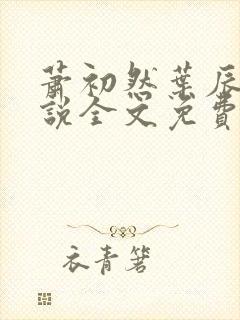 萧初然葉辰
說全文免費
衣青箬